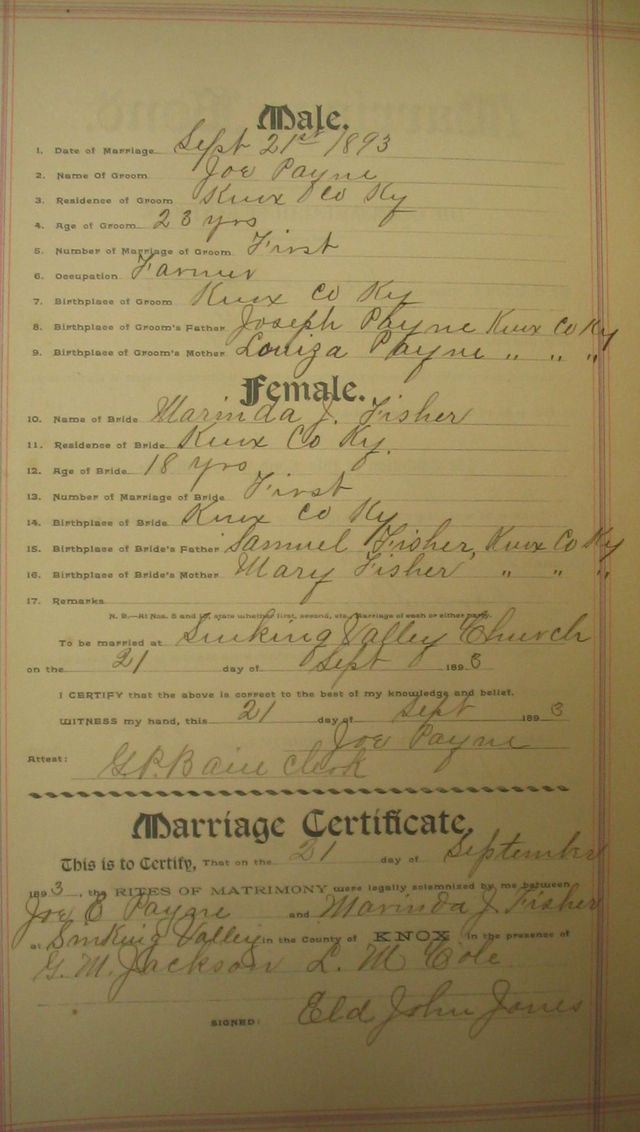 Male.
1. Date of Marriage Sept 21st 1893
2. Name Of Groom Joe Payne
3. Residence of Groom Knox Co Ky
4. Age of Groom 23 yrs
5. Number of Marriage of Groom First
6. Occupation Farmer
7. Birthplace of Groom Knox Co Ky
8. Birthplace of Groom's Father Joseph Payne Knox Co Ky
9. Birthplace of Groom's Mother Louiza Payne " " "
Female.
10. Name of Bride Marinda J. Fisher
11. Residence of Bride Knox Co Ky.
12. Age of Bride 18 yrs
13. Number of Marriage of Bride First
14. Birthplace of Bride Knox Co Ky
15. Birthplace of Bride's Father Samuel Fisher, Knox Co Ky
16. Birthplace of Bride's Mother Mary Fisher " " "
17. Remarks
N. B.—At Nos. 5 and 13, state whether first, second, etc., Marriage of each or either party.
To be married at Sinking Valley Church
on the 21 day of Sept 1893
I CERTIFY that the above is correct to the best of my knowledge and belief.
WITNESS my hand, this 21 day of Sept 1893
Joe Payne
Attest: G.P. Bain Clerk
Marriage Certificate
This is to Certify, That on the 21 day of September
1893, the RITES OF MATRIMONY were legally solemnized by me between
Joe E Payne and Marinda J. Fisher
at Sinking Valley in the County of KNOX in the presence of
G. M. Jackson L. M Cole
SIGNED: Eld John Jones